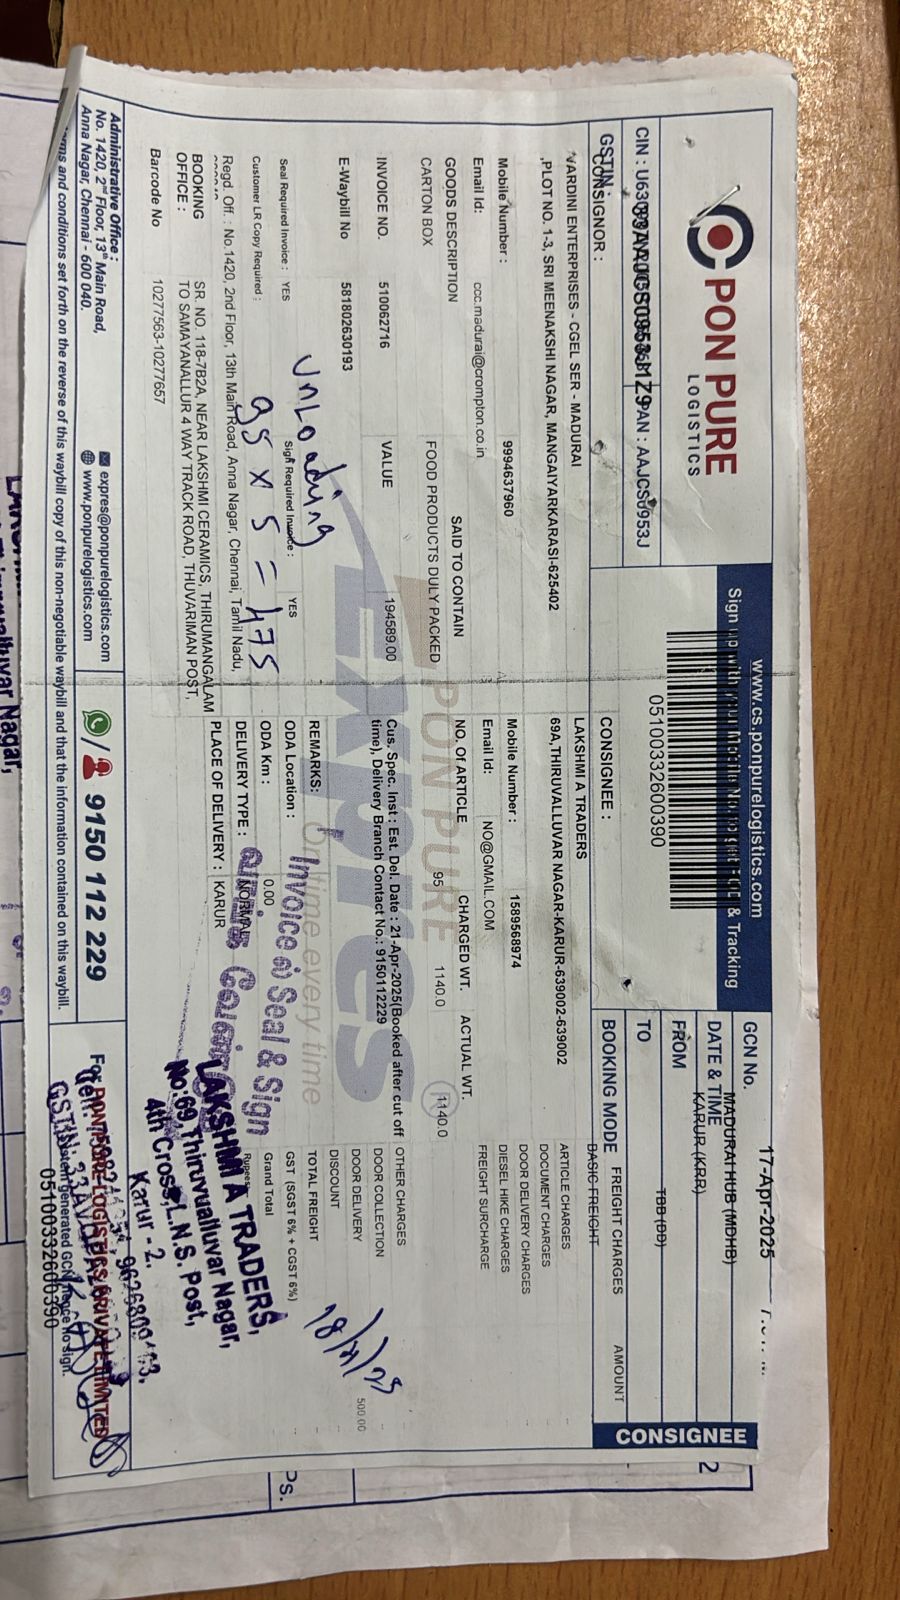 PON PURE
LOGISTICS
www.cs.ponpurelogistics.com
& Tracking
05100332600390
CONSIGNEE
GCN No.
DATE & TIME
17-Apr-2025
FROM
MADURAI HUB (MDHB)
TO
KARUR (KRR)
BOOKING MODE
TBB (DD)
CONSIGNOR :
VARDINI ENTERPRISES - CGEL SER - MADURAI
,PLOT NO. 1-3, SRI MEENAKSHI NAGAR, MANGAIYARKARASI-625402
Mobile Number : 9994637960
Email Id: ccc.madurai@crompton.co.in
CONSIGNEE :
LAKSHMI A TRADERS
69A,THIRUVALLUVAR NAGAR-KARUR-639002-639002
Mobile Number : 1589568974
Email Id: NO@GMAIL.COM
GOODS DESCRIPTION
SAID TO CONTAIN
NO. Of ARTICLE
CHARGED WT.
ACTUAL WT.
CARTON BOX
FOOD PRODUCTS DULY PACKED
95
1140.0
1140.0
INVOICE NO. 510062716
VALUE 194589.00
E-Waybill No 581802630193
Cus. Spec. Inst : Est. Del. Date : 21-Apr-2025(Booked after cut off
time), Delivery Branch Contact No.: 9150112229
Seal Required Invoice : YES
Sign Required Invoice : YES
Customer LR Copy Required :
REMARKS:
ODA Location :
ODA Km : 0.00
DELIVERY TYPE : NORMAL
PLACE OF DELIVERY : KARUR
FREIGHT CHARGES AMOUNT
BASIC FREIGHT
ARTICLE CHARGES
DOCUMENT CHARGES
DOOR DELIVERY CHARGES
DIESEL HIKE CHARGES
FREIGHT SURCHARGE
OTHER CHARGES
DOOR COLLECTION
DOOR DELIVERY 500.00
DISCOUNT
TOTAL FREIGHT
GST (SGST 6% + CGST 6%)
Grand Total
Rupees
Unloading
95 x 5 = 475
PON PURE
EXPRES
On time every time
Invoice ல் Seal & Sign
LAKSHMI A TRADERS,
No:69,Thiruvalluvar Nagar,
4th Cross, L.N.S. Post,
Karur - 2.
Regd. Off. : No.1420, 2nd Floor, 13th Main Road, Anna Nagar, Chennai, Tamil Nadu,
BOOKING OFFICE :
SR. NO. 118-7B2A, NEAR LAKSHMI CERAMICS, THIRUMANGALAM
TO SAMAYANALLUR 4 WAY TRACK ROAD, THUVARIMAN POST,
Barcode No 10277563-10277657
Administrative Office :
No. 1420, 2nd Floor, 13th Main Road,
Anna Nagar, Chennai - 600 040.
expres@ponpurelogistics.com
www.ponpurelogistics.com
9150 112 229
For PON PURE LOGISTICS PRIVATE LIMITED
05100332600390
terms and conditions set forth on the reverse of this waybill copy of this non-negotiable waybill and that the information contained on this waybill.